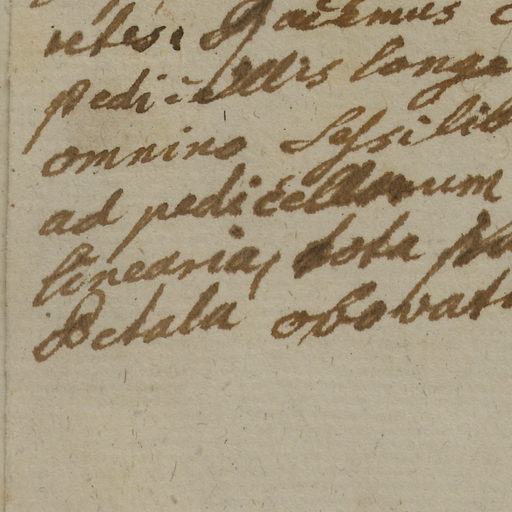 Racemus
pedicellis longe
omnino Sessilib
ad pedicellorum
linearia, tota
Petala obovat